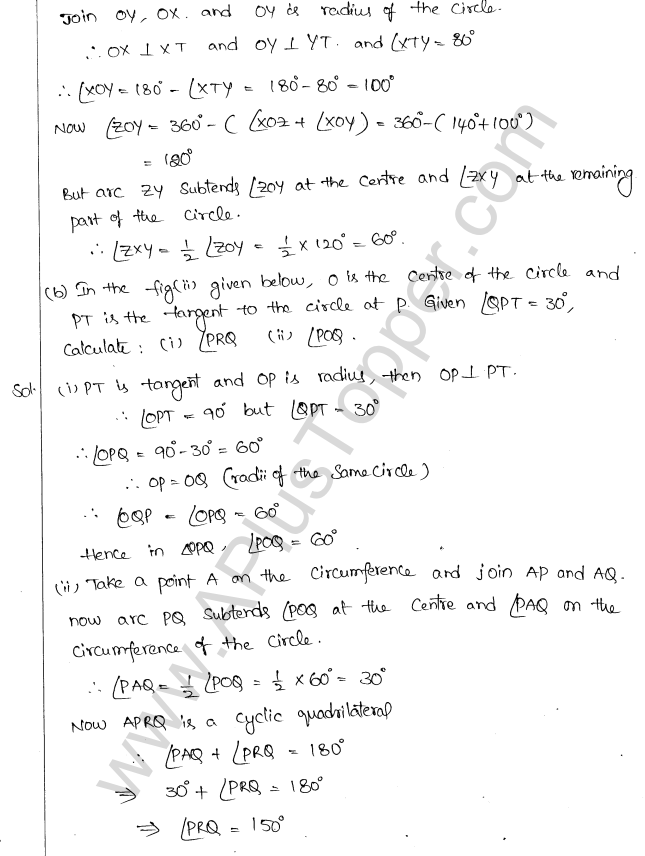 Join OY, OX. and OY is radius of the circle.
∴ OX ⊥ XT and OY ⊥ YT. and ∠XTY = 80°
∴ ∠XOY = 180° - ∠XTY = 180° - 80° = 100°
Now ∠ZOY = 360° - ( ∠XOZ + ∠XOY) = 360° - ( 140° + 100° )
= 120°
But arc ZY subtends ∠ZOY at the centre and ∠ZXY at the remaining
part of the circle.
∴ ∠ZXY = 1/2 ∠ZOY = 1/2 × 120° = 60°.
(b) In the fig(ii) given below, O is the centre of the circle and
PT is the tangent to the circle at P. Given ∠QPT = 30°,
Calculate : (i) ∠PRQ (ii) ∠POQ .
Sol. (i) PT is tangent and OP is radius, then OP ⊥ PT.
∴ ∠OPT = 90° but ∠QPT = 30°
∴ ∠OPQ = 90° - 30° = 60°
∴ OP = OQ (radii of the same circle)
∴ ∠OQP = ∠OPQ = 60°
Hence in △OPQ, ∠POQ = 60°
(ii) Take a point A on the circumference and join AP and AQ.
now arc PQ subtends ∠POQ at the centre and ∠PAQ on the
circumference of the circle.
∴ ∠PAQ = 1/2 ∠POQ = 1/2 × 60° = 30°
Now APRQ is a cyclic quadrilateral
∴ ∠PAQ + ∠PRQ = 180°
⇒ 30° + ∠PRQ = 180°
⇒ ∠PRQ = 150°
www.APlusTopper.com